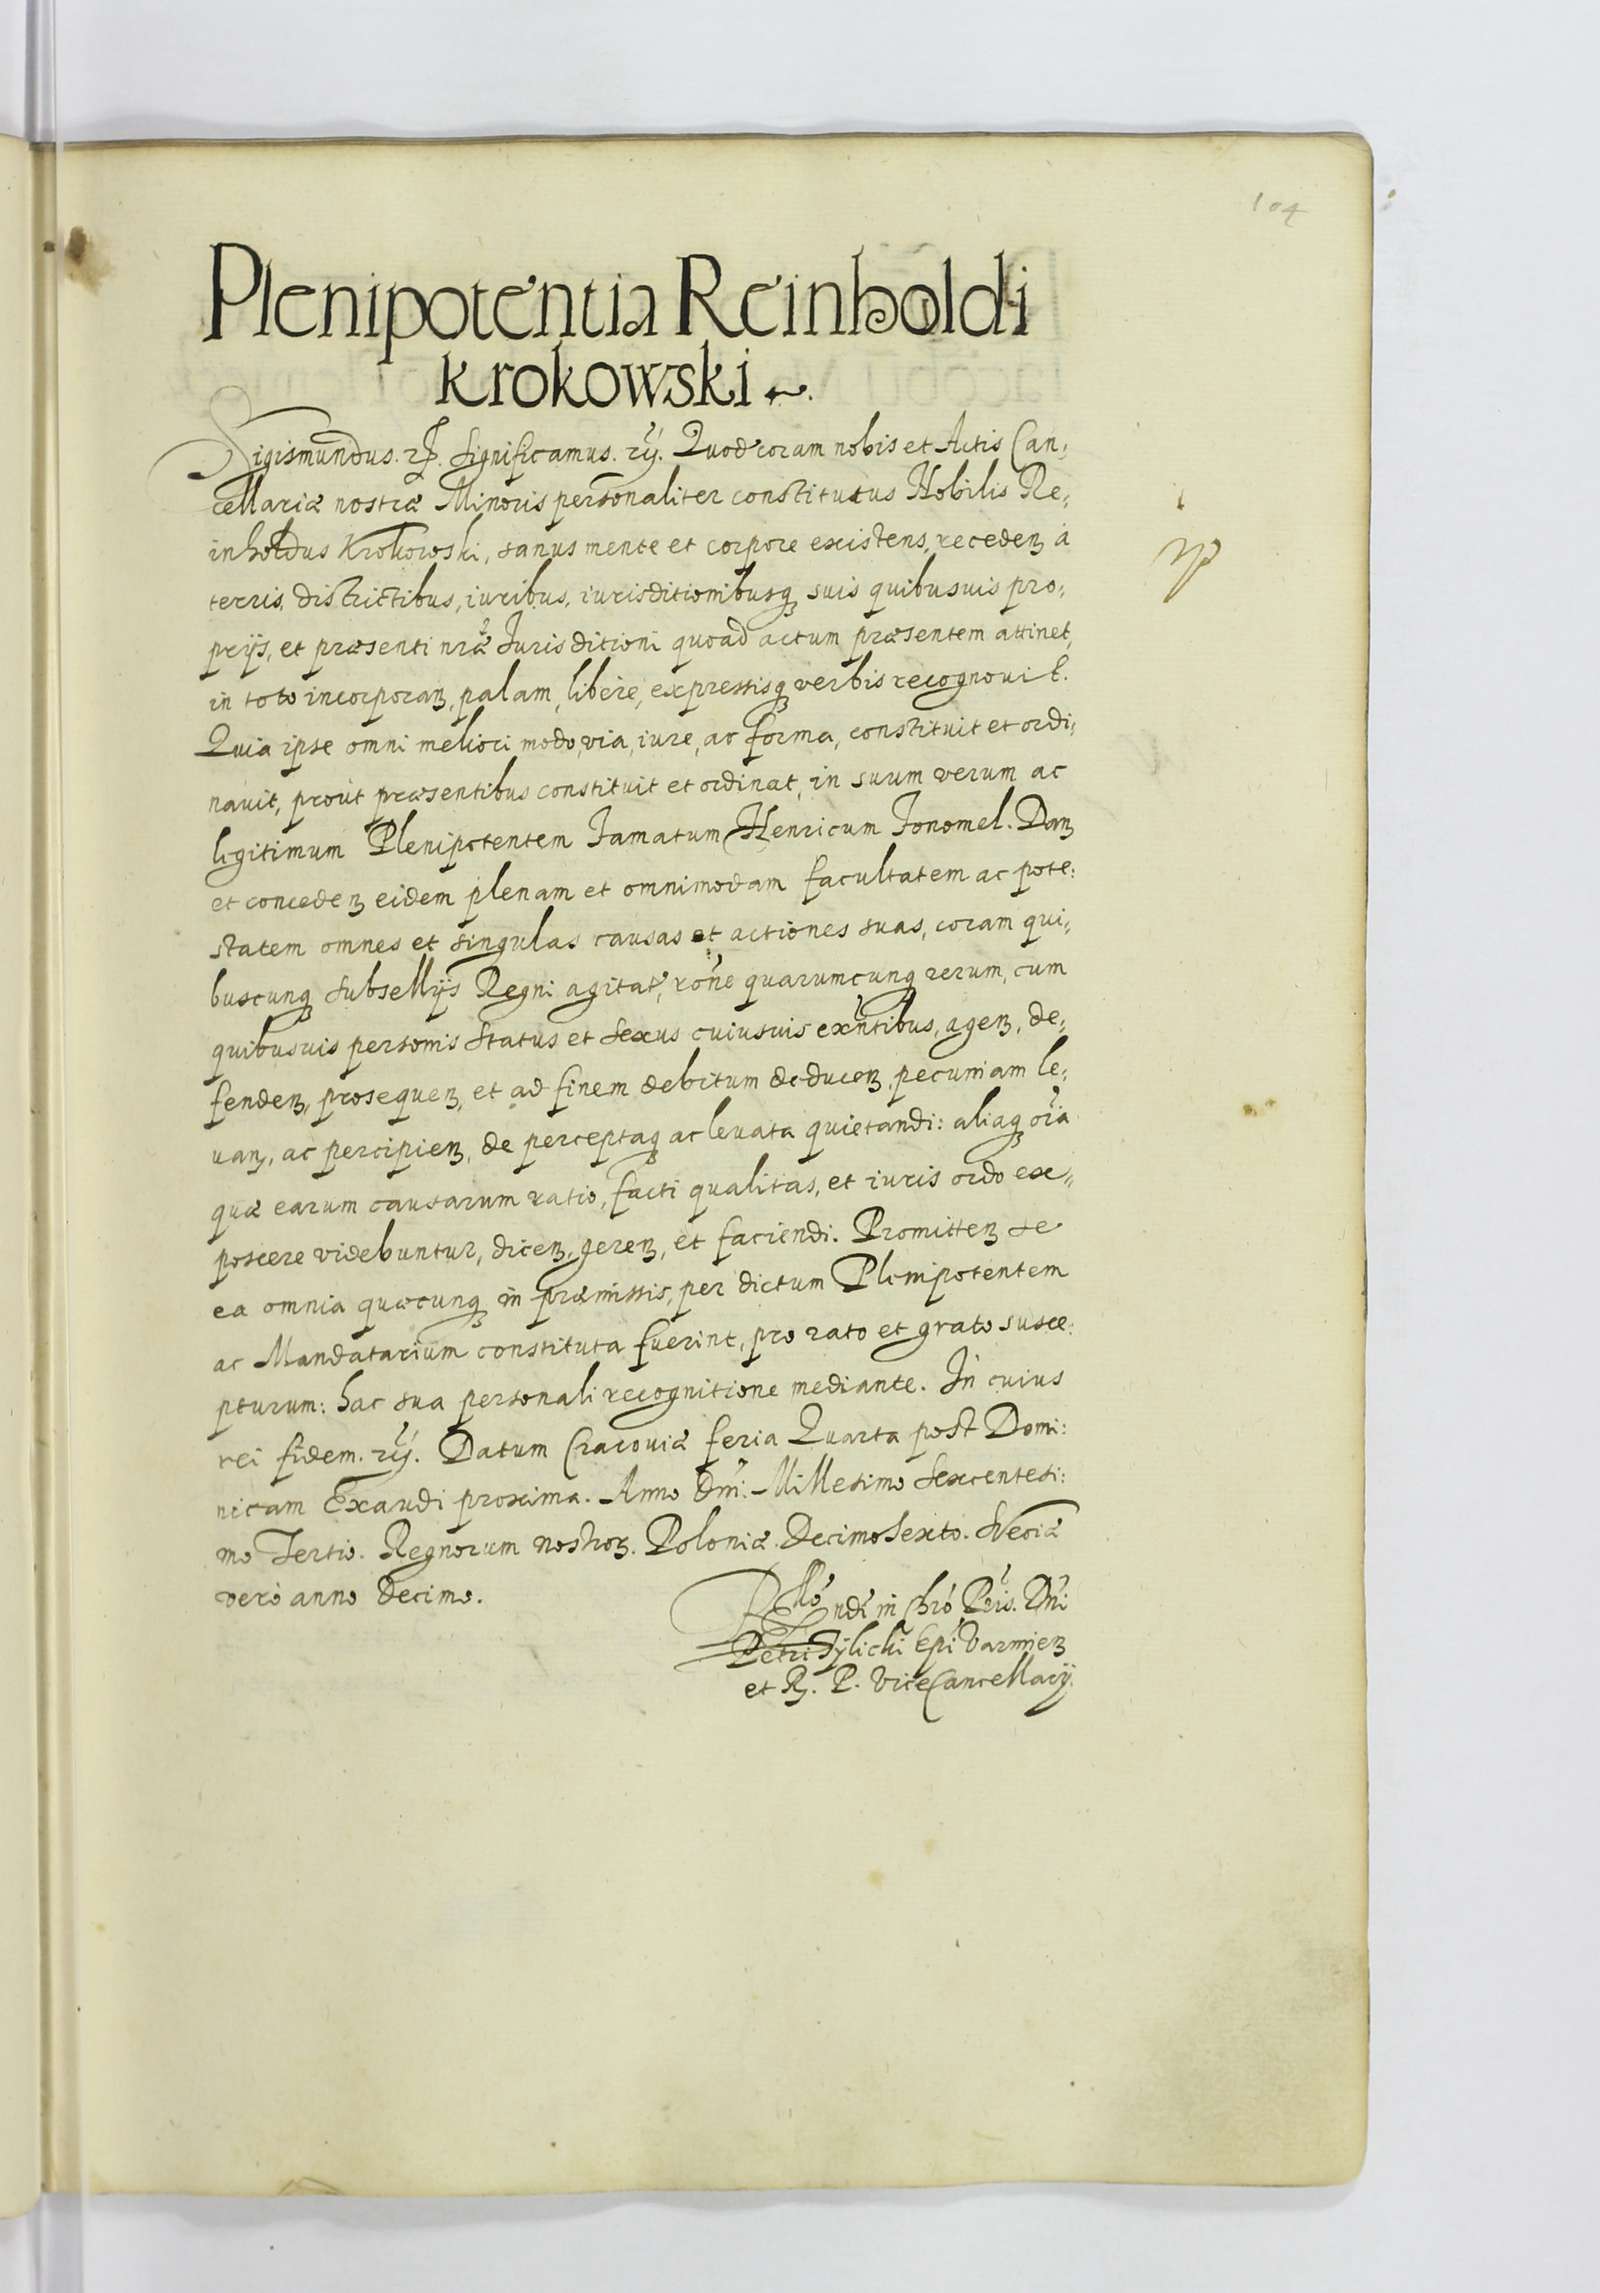 104
Plenipotentia Reinholdi
Krokowski
Sigismundus. rp. significamus. rz. Quod coram nobis et Actis Can:
cellariæ nostræ Minoris personaliter constitutus Nobilis Re:
inholdus Krokowski, sanus mente et corpore existens, recedenȝ à
terris, districtibus, iuribus, iurisditionibusqȝ suis quibusuis pro:
prijs, et præsenti nræ Jurisditioni quoad actum præsentem attinet,
in toto incorporanȝ, palam, libere, expressisqȝ verbis recognouit.
Quia ipse omni meliori modo, via, iure, ac forma, constituit et ordi:
nauit, prout præsentibus constituit et ordinat, in suum verum ac
legitimum Plenipotentem Famatum Henricum Fonomel. Danȝ
et concedenȝ eidem plenam et omnimodam facultatem ac pote:
statem omnes et singulas causas et actiones suas, coram qui:
buscunqȝ subsellijs Regni agitat, rone quarumcunqȝ rerum, cum
quibusuis personis status et sexus cuiusuis exntibus, agenȝ, de:
fendenȝ, prosequenȝ, et ad finem debitum deducenȝ, pecuniam le:
uanȝ, ac percipienȝ, de perceptaqȝ ac leuata quietandi: aliaqȝ oia
quæ earum causarum ratio, facti qualitas, et iuris ordo ex:
poscere videbuntur, dicenȝ, gerenȝ, et faciendi. Promittenȝ se
ea omnia quæcunqȝ in præmissis, per dictum Plenipotentem
ac Mandatarium constituta fuerint, pro rato et grato susce:
pturum: hac sua personali recognitione mediante. In cuius
rei fidem. rz. Datum Cracouiæ feria Quarta post Domi:
nicam Exaudi proxima. Anno Dni: Millesimo Sexcentesi:
mo Tertio. Regnorum nostrorȝ. Poloniæ Decimo Sexto. Sueciæ
verò anno decimo.
Rllo ndi in Chro Pris. Dni
Petri Tylicki Epi Varmienȝ
et R. P. ViceCancellarij.